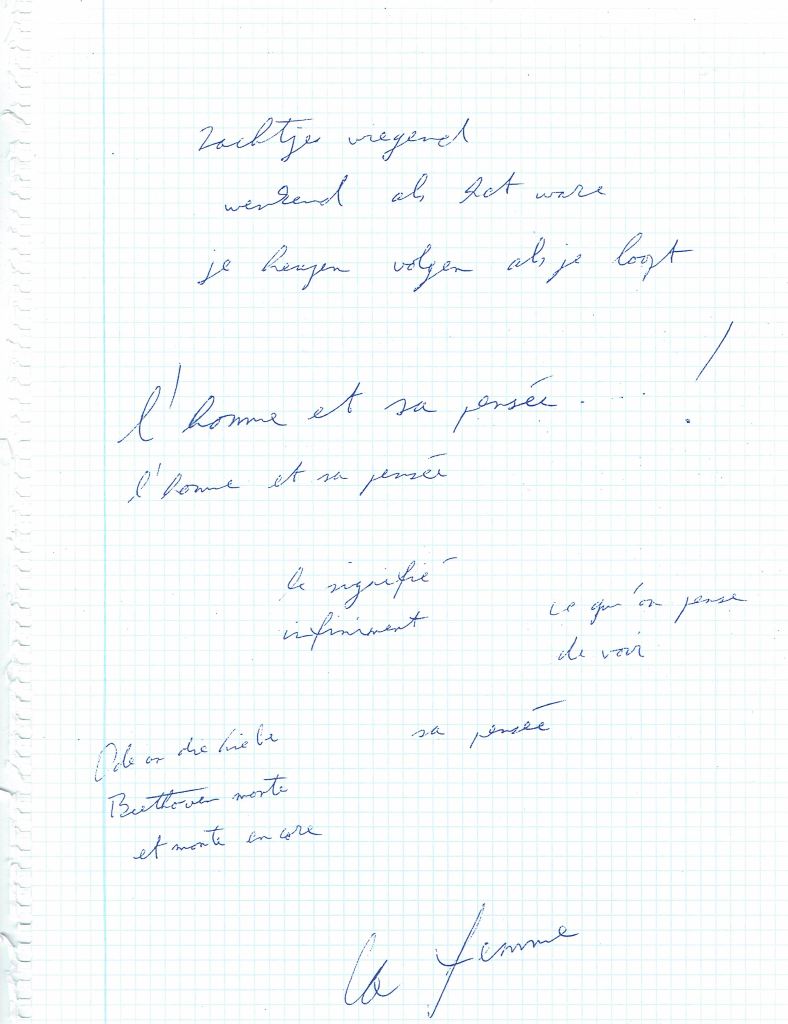 zachtjes wiegend
wenkend als het ware
je heupen volgen als je loopt
l'homme et sa pensée . . . . !
l'homme et sa pensée
le signifié
infiniment
ce qu'on pense
de voir
sa pensée
Ode an die Liebe
Beethoven monte
et monte encore
la femme